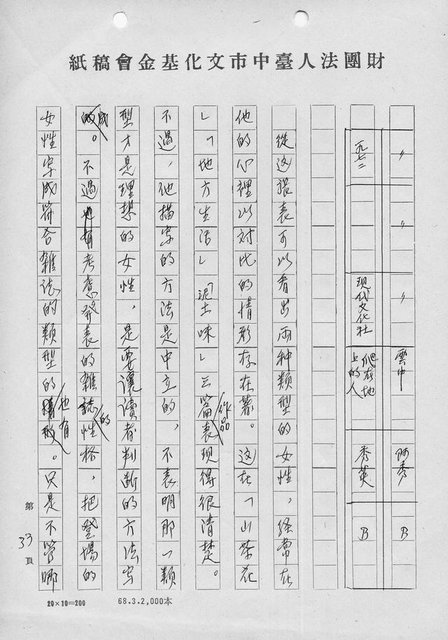 財團法人臺中市文化基金會稿紙
〃 〃 雲中 阿秀 B
一九七二 現代文化社 爬在地上的人 秀英 B
從這張表可以看出兩種類型的女性，經常在
他的心裡以對比的情形存在著。這在「山茶花
」「地方生活」「泥土味」三篇作品表現得很清楚。
不過，他描寫的方法是中立的，不表明那一類
型才是理想的女性，是要讓讀者判斷的方法寫
成。不過考慮發表的雜誌的性格，把登場的
女性寫成符合雜誌的類型的也有。只是不管哪
第33頁
20×10=200
68.3.2,000本